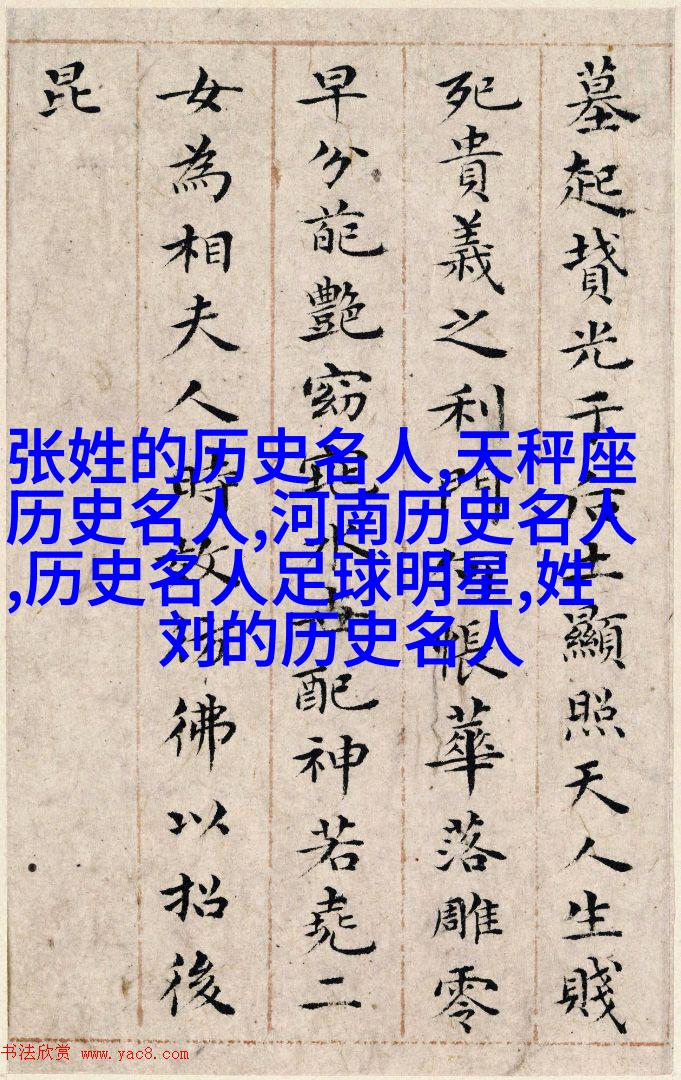 墓起賁光于后土顯照天人生賤
死貴義之利門何悵華落雕零
早分葩艷窈窕永世配神若堯二
女為相夫人時效彷彿以招後
昆
张姓的历史名人,天秤座
历史名人,河南历史名人
,历史名人足球明星,姓
刘的历史名人
书法欣赏 www.yac8.com